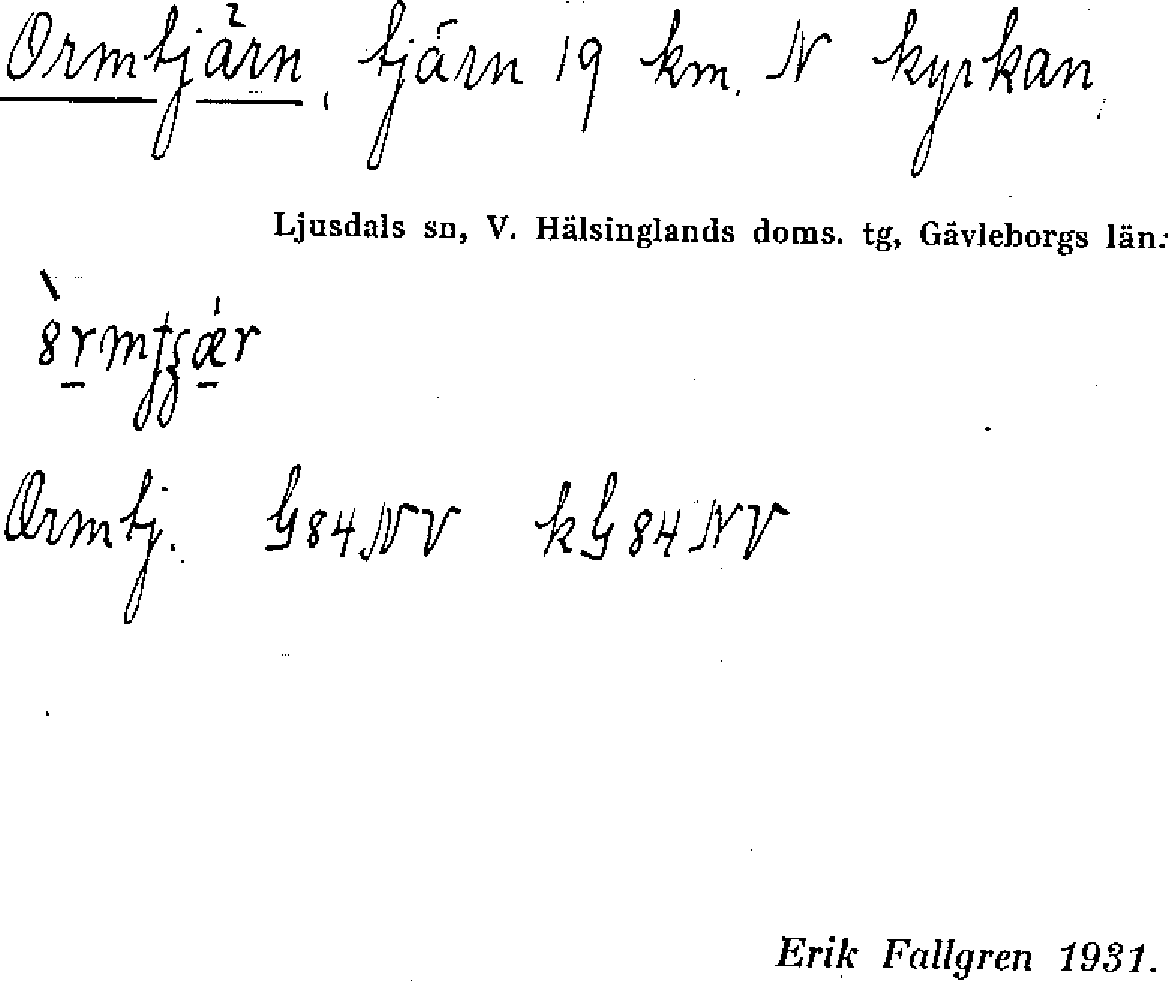 Ormtjärn, tjärn 19 km. N kyrkan.
Ljusdals sn, V. Hälsinglands doms. tg, Gävleborgs län.
Ormtj. G84NV kG84NV
Erik Fallgren 1931.